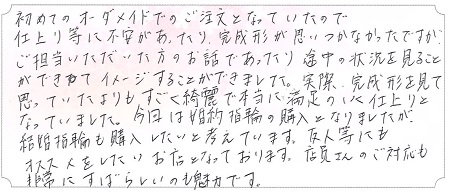 初めてのオーダメイドでのご注文となっていたので
仕上り等に不安があったり、完成形が思いつかなかったですが、
ご担当いただいた方のお話であったり 途中の状況を見ること
ができたて イメージすることができました。実際、完成形を見て
思っていたよりも、すごく綺麗で本当に満足のいく仕上りと
なっていました。今回は婚約指輪の購入となりましたが、
結婚指輪も購入したいと考えています。友人等にも
オススメをしたいお店となっております。店員さんのご対応も
非常にすばらしいのも魅力です。